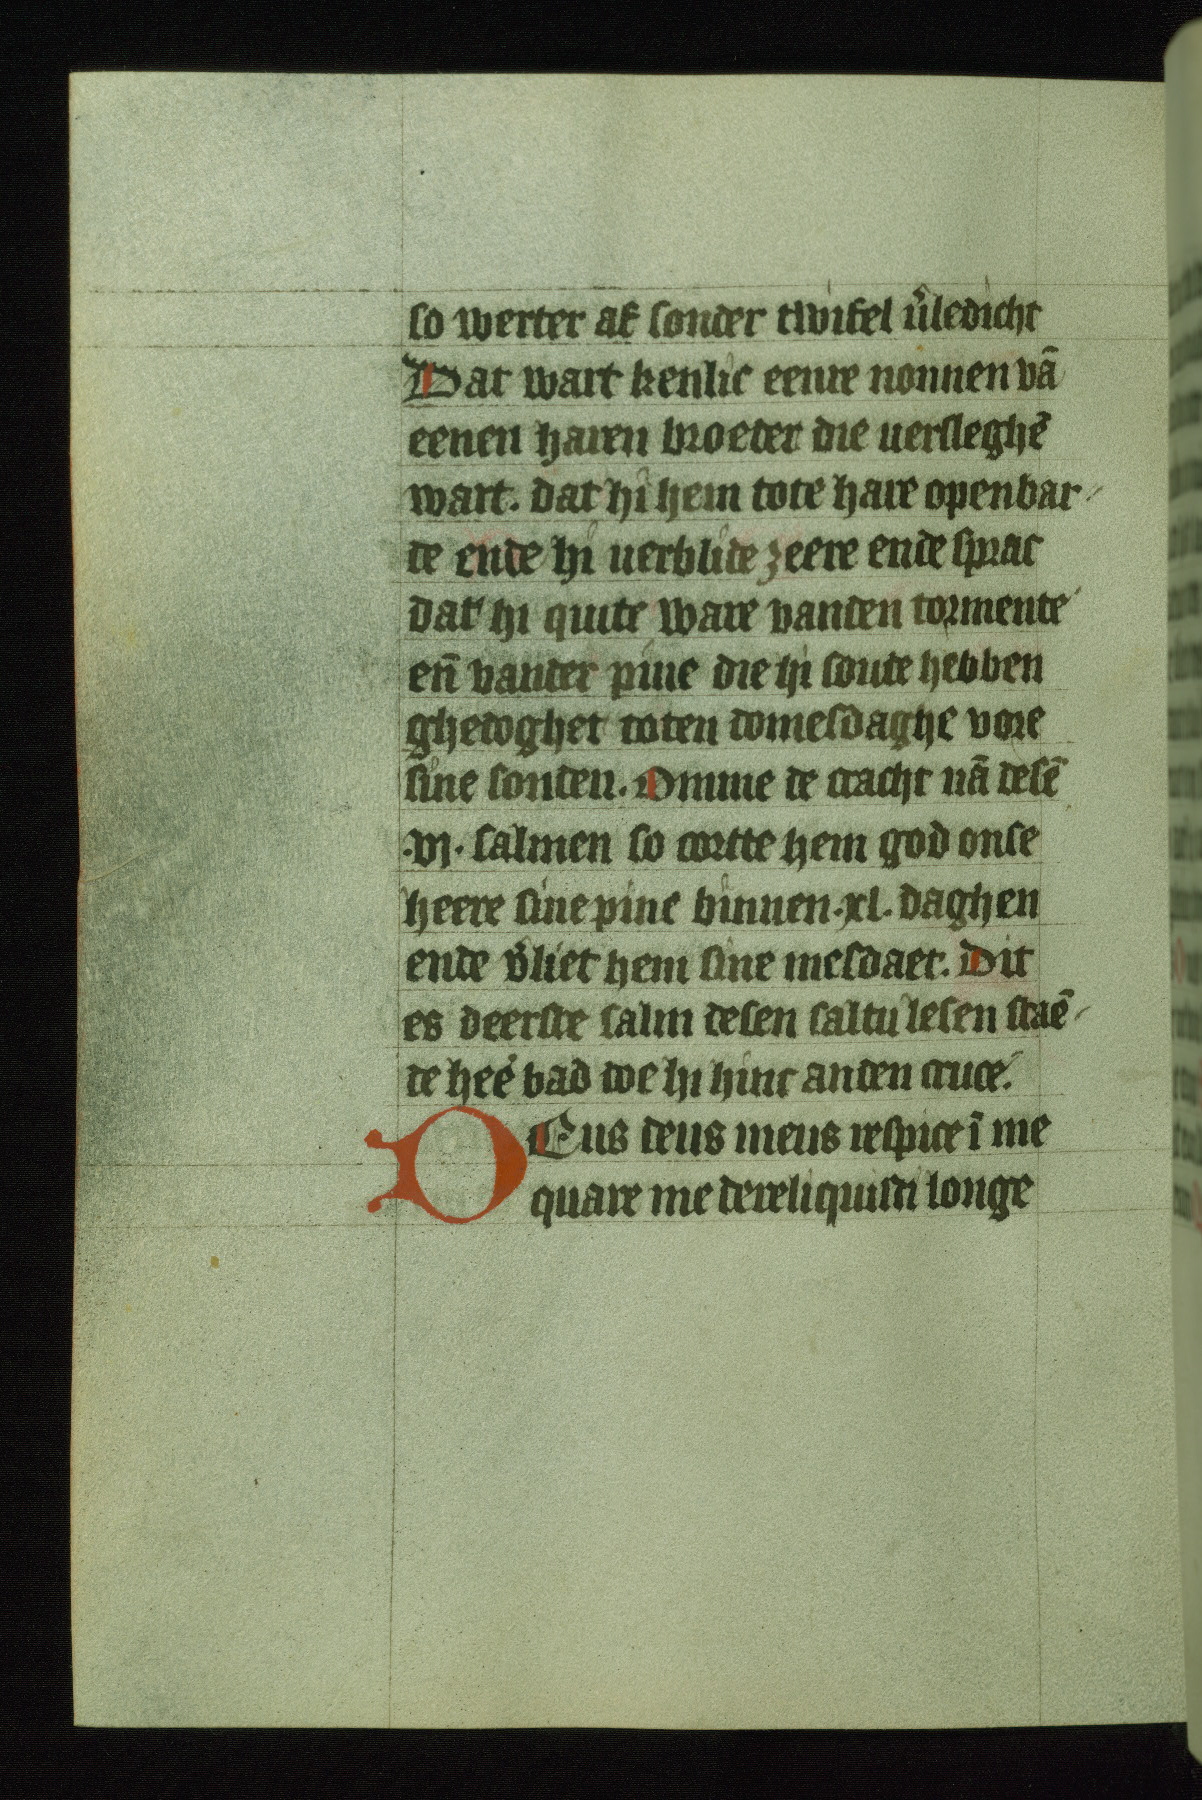 so werter af sonder twifel v̉ledicht
Dat wart kenlic eenre nonnen vā
eenen haren broeder die uersleghē
wart. dat hi hem tote hare openbar-
de ende hi uerblide zeere ende sprac
dat hi quite ware vanden tormente
en̄ vander pine die hi soude hebben
ghedoghet toten domesdaghe vore
sine sonden. Omme de cracht uā desē
.vj. salmen so cortte hem god onse
heere sine pine binnen .xl. daghen
ende v̉liet hem sine mesdaet. Dit
es deerste salm desen saltu lesen staē-
de heē bad doe hi hinc anden cruce.
DEus deus meus respice ī me
quare me dereliquisti longe